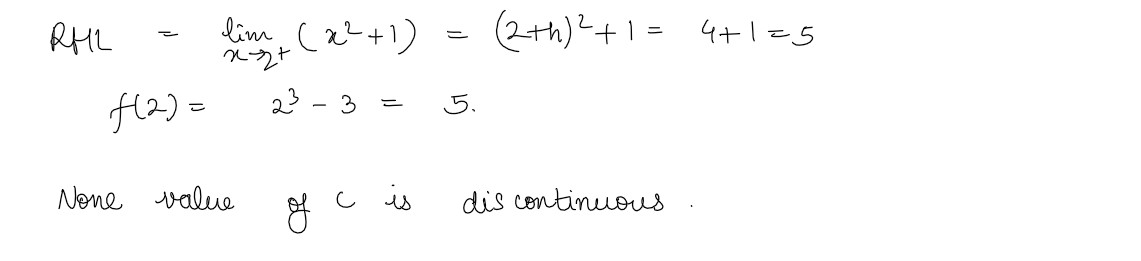 RHL = lim x→2⁺ (x² + 1) = (2+h)² + 1 = 4 + 1 = 5
f(2) = 2³ - 3 = 5.
None value of c is discontinuous.